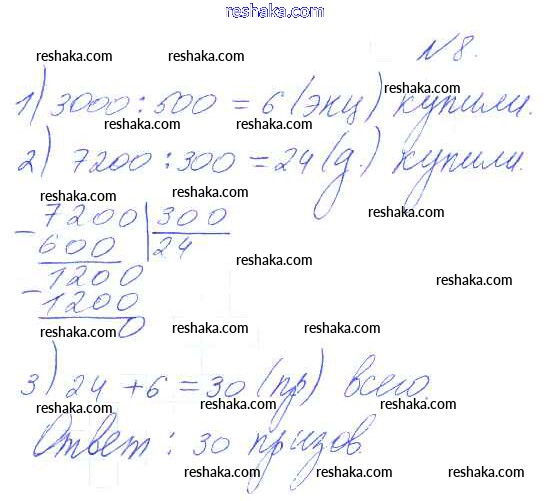 www.reshaka.com
№8.
reshaka.com reshaka.com
1) 3000 : 500 = 6 (экц) купили.
reshaka.com reshaka.com
2) 7200 : 300 = 24 (д.) купили.
reshaka.com reshaka.com
reshaka.com
- 7200 | 300
600 24
reshaka.com
- 1200
reshaka.com
1200
0
reshaka.com reshaka.com reshaka.com
3) 24 + 6 = 30 (пр) всего.
reshaka.com reshaka.com
reshaka.com reshaka.com
Ответ : 30 призов.
reshaka.com reshaka.com